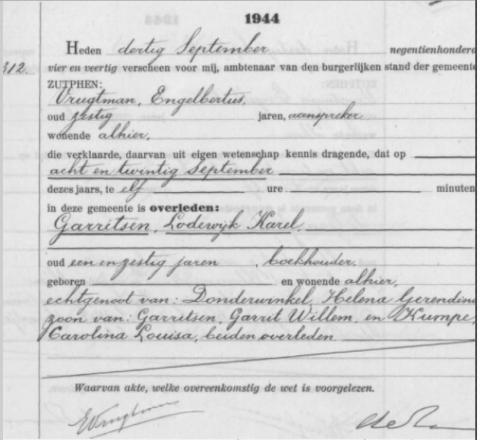 1944
Heden dertig September negentienhonderd
312. vier en veertig verscheen voor mij, ambtenaar van den burgerlijken stand der gemeente
ZUTPHEN:
Vrugtman, Engelbertus,
oud zestig jaren, aanspreker
wonende alhier,
die verklaarde, daarvan uit eigen wetenschap kennis dragende, dat op
acht en twintig September
dezes jaars, te elf ure minuten
in deze gemeente is overleden:
Garritsen, Lodewijk Karel,
oud een en zestig jaren, boekhouder,
geboren en wonende alhier,
echtgenoot van: Donderwinkel, Helena Gerendina
zoon van: Garritsen, Garrit Willem, en Kumpe,
Carolina Louisa, beiden overleden
Waarvan akte, welke overeenkomstig de wet is voorgelezen.
EVrugtman